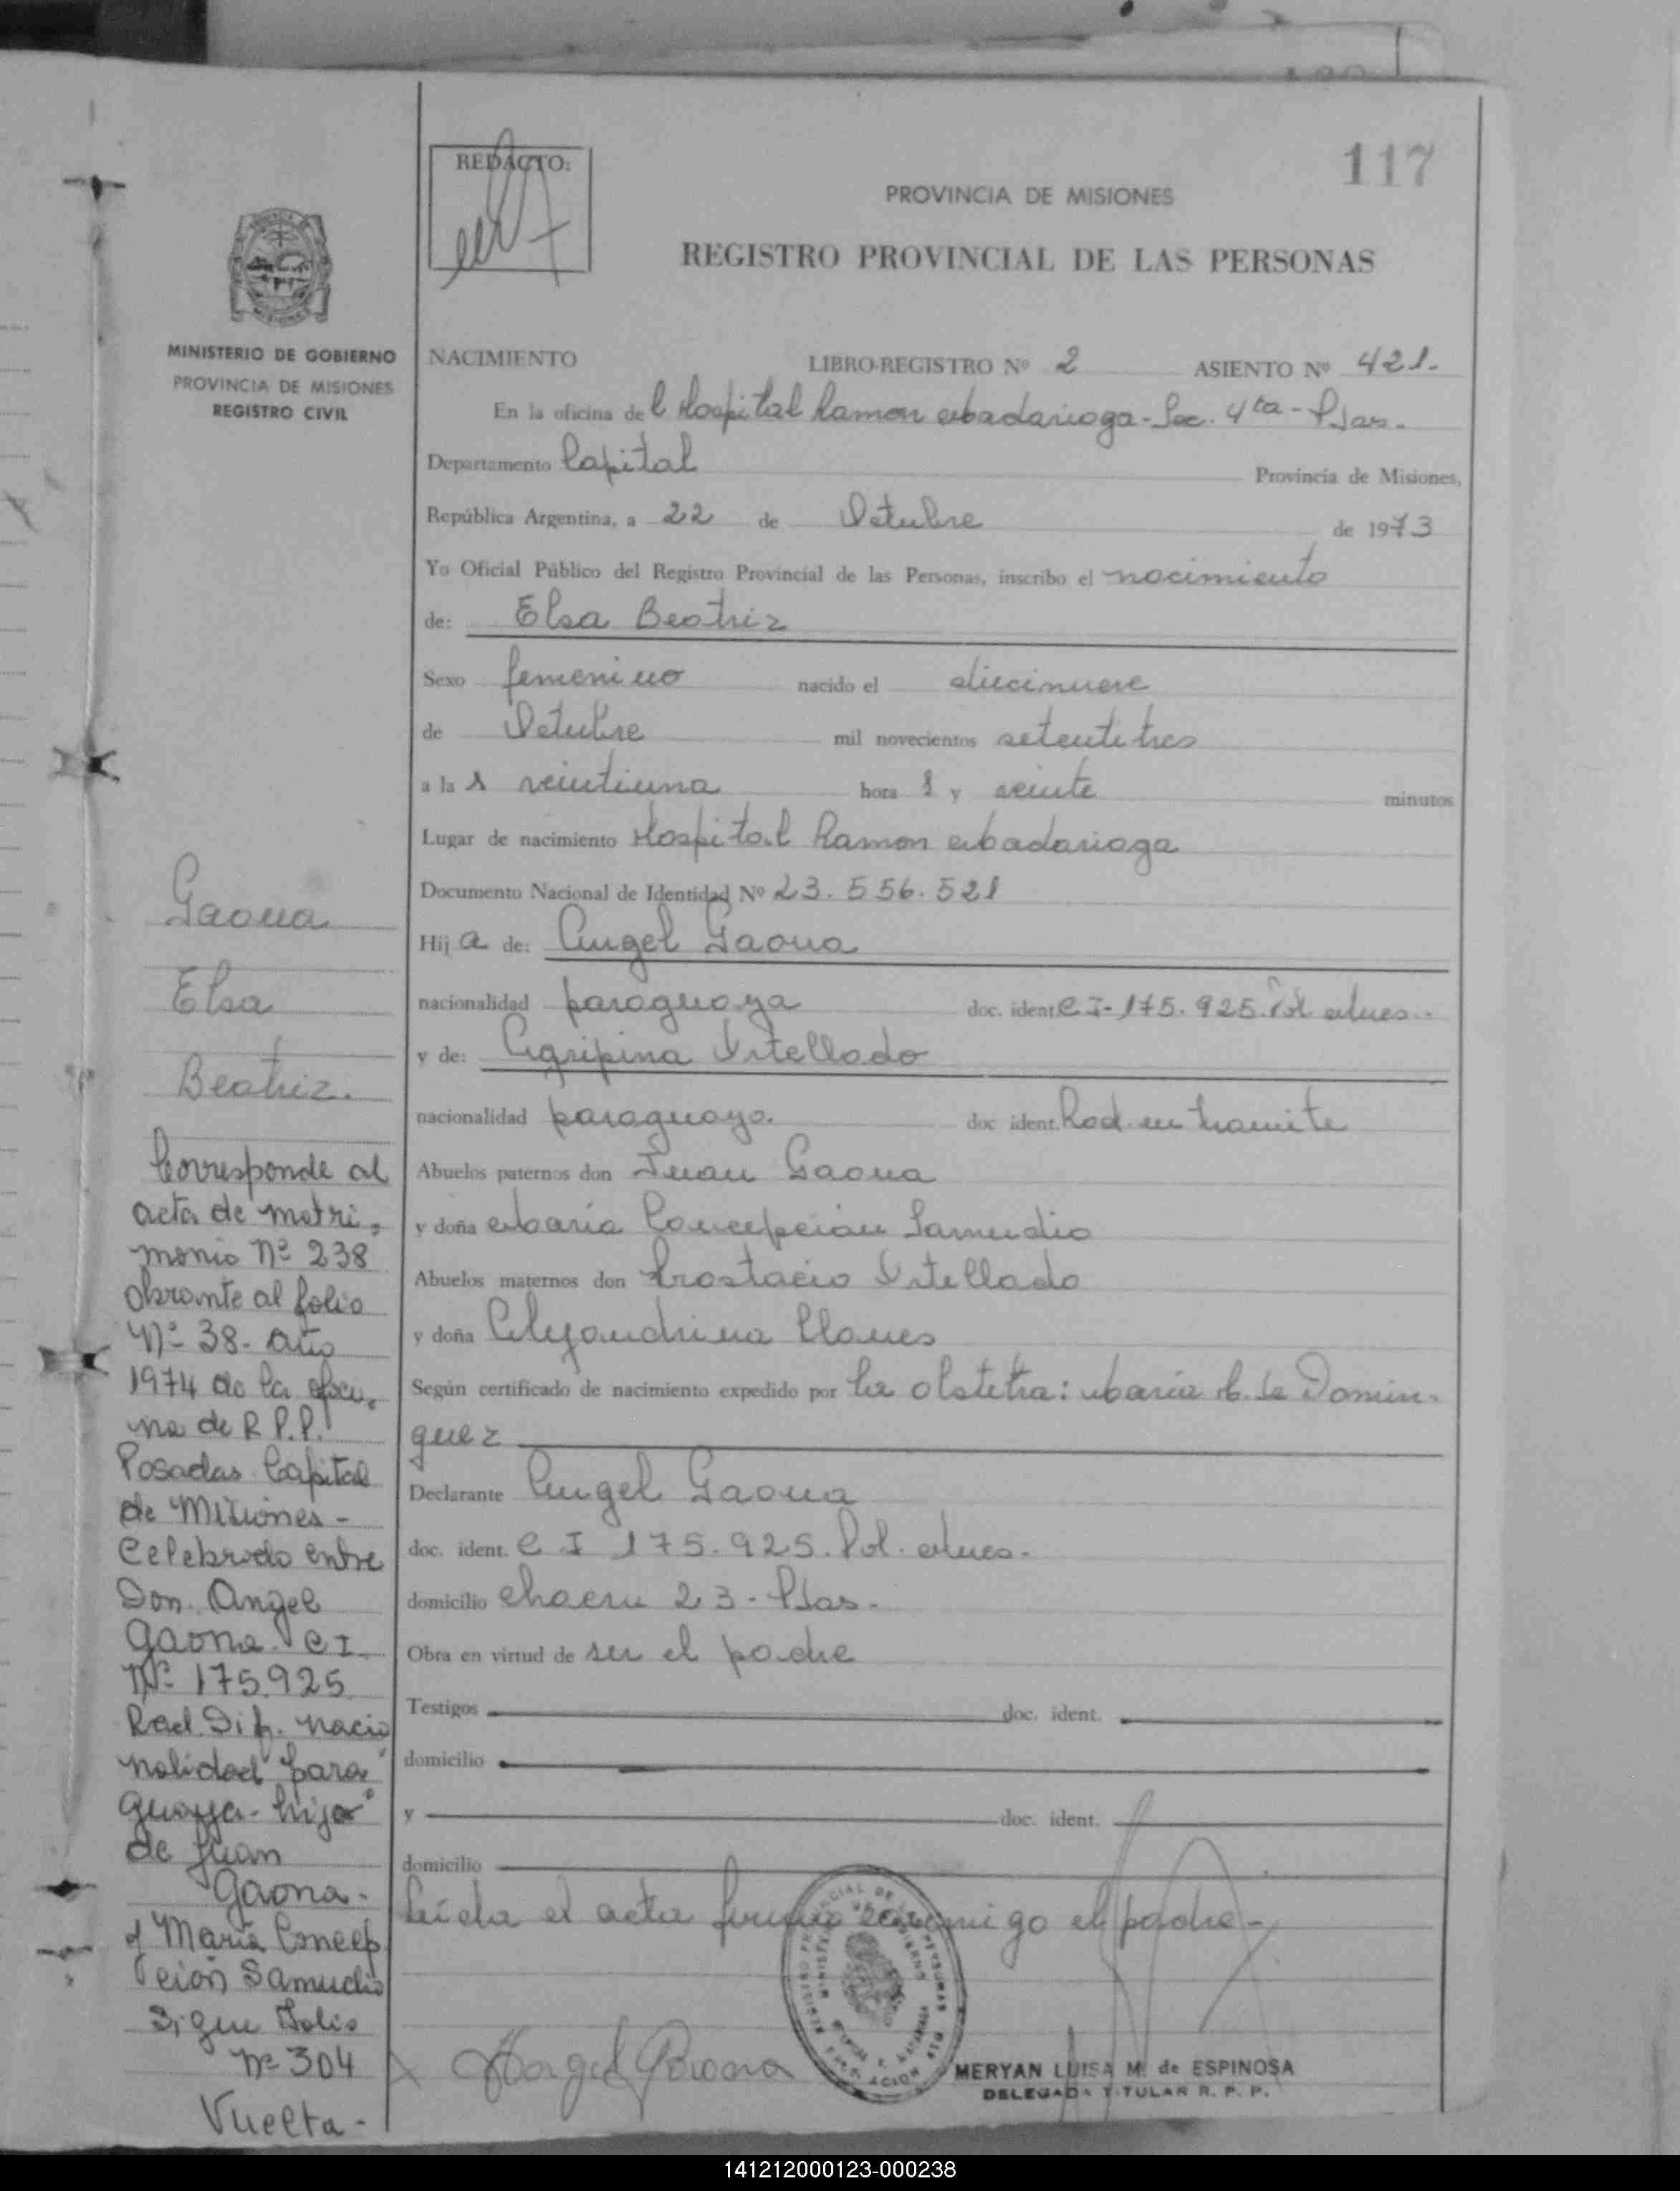 117
REDACTO:
PROVINCIA DE MISIONES
REGISTRO PROVINCIAL DE LAS PERSONAS
MINISTERIO DE GOBIERNO
PROVINCIA DE MISIONES
REGISTRO CIVIL
NACIMIENTO LIBRO-REGISTRO Nº 2 ASIENTO Nº 421.-
En la oficina del Hospital Ramon Madariaga - Sec. 4ta - Pdas.
Departamento Capital Provincia de Misiones,
República Argentina, a 22 de Octubre de 1973
Yo Oficial Público del Registro Provincial de las Personas, inscribo el nacimiento
de: Elsa Beatriz
Sexo femenino nacido el diecinueve
de Octubre mil novecientos setentitres
a las veintiuna horas y veinte minutos
Lugar de nacimiento Hospital Ramon Madariaga
Documento Nacional de Identidad Nº 23.556.521
Hija de: Angel Gaona
nacionalidad paraguaya doc. ident. C I - 175.925. Pol. Mnes.-
y de: Agripina Ortellado
nacionalidad paraguaya. doc ident. Rad. en tramite
Abuelos paternos don Juan Gaona
y doña Maria Concepcion Samudio
Abuelos maternos don Ortellado
y doña Alejandrina Llanes
Según certificado de nacimiento expedido por la obstetra: Maria C. de Domin-
guez
Declarante Angel Gaona
doc. ident. C I 175.925. Pol. Mnes.-
domicilio Chacra 23 - Pdas.-
Obra en virtud de ser el padre
Testigos doc. ident.
domicilio
y doc. ident.
domicilio
Leida el acta firma conmigo el padre -
Angel Gaona
MERYAN LUISA M. de ESPINOSA
DELEGADA TITULAR R. P. P.
Gaona
Elsa
Beatriz.
Corresponde al
acta de matri-
monio Nº 238
obrante al folio
Nº 38 - año
1974 de la ofici-
na de R.P.P.
Posadas Capital
de Misiones -
Celebrado entre
Don Angel
Gaona C I
Nº 175.925
Rad. Dif. nacio
nalidad para
guaya - hijo
de Juan
Gaona -
y Maria Concep
cion Samudio
Sigue Folio
Nº 304
Vuelta -
141212000123-000238